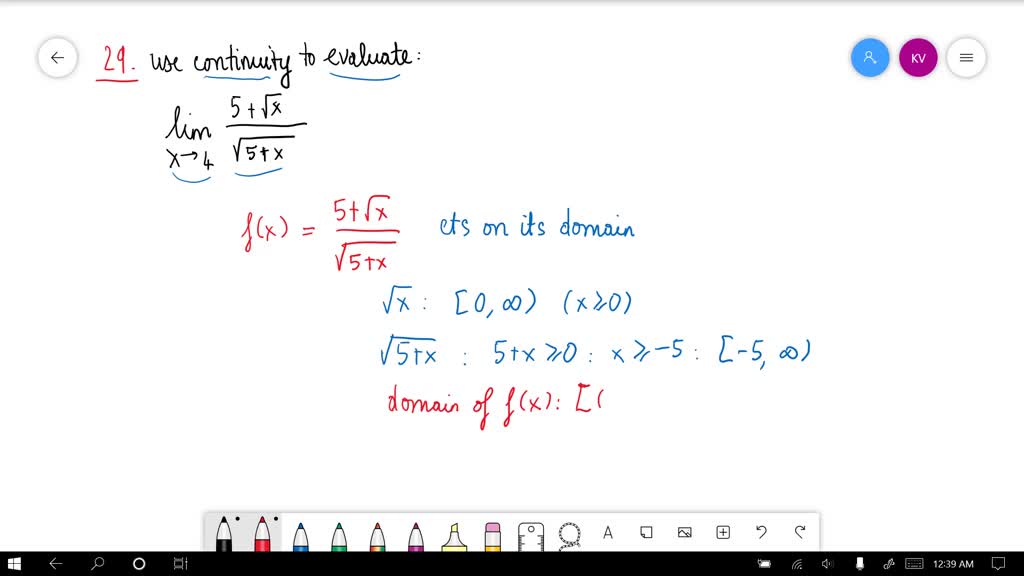 29. use continuity to evaluate:
lim x→4 (5+√x)/(√5+x)
f(x) = (5+√x)/(√5+x) cts on its domain
√x : [0, ∞) (x ⩾ 0)
√5+x : 5+x ⩾ 0 : x ⩾ -5 : [-5, ∞)
domain of f(x): [(
KV
A
12:39 AM